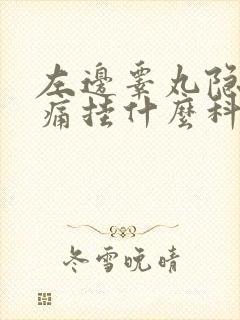 左邊睾丸隐
痛挂什麼科
冬雪晚晴